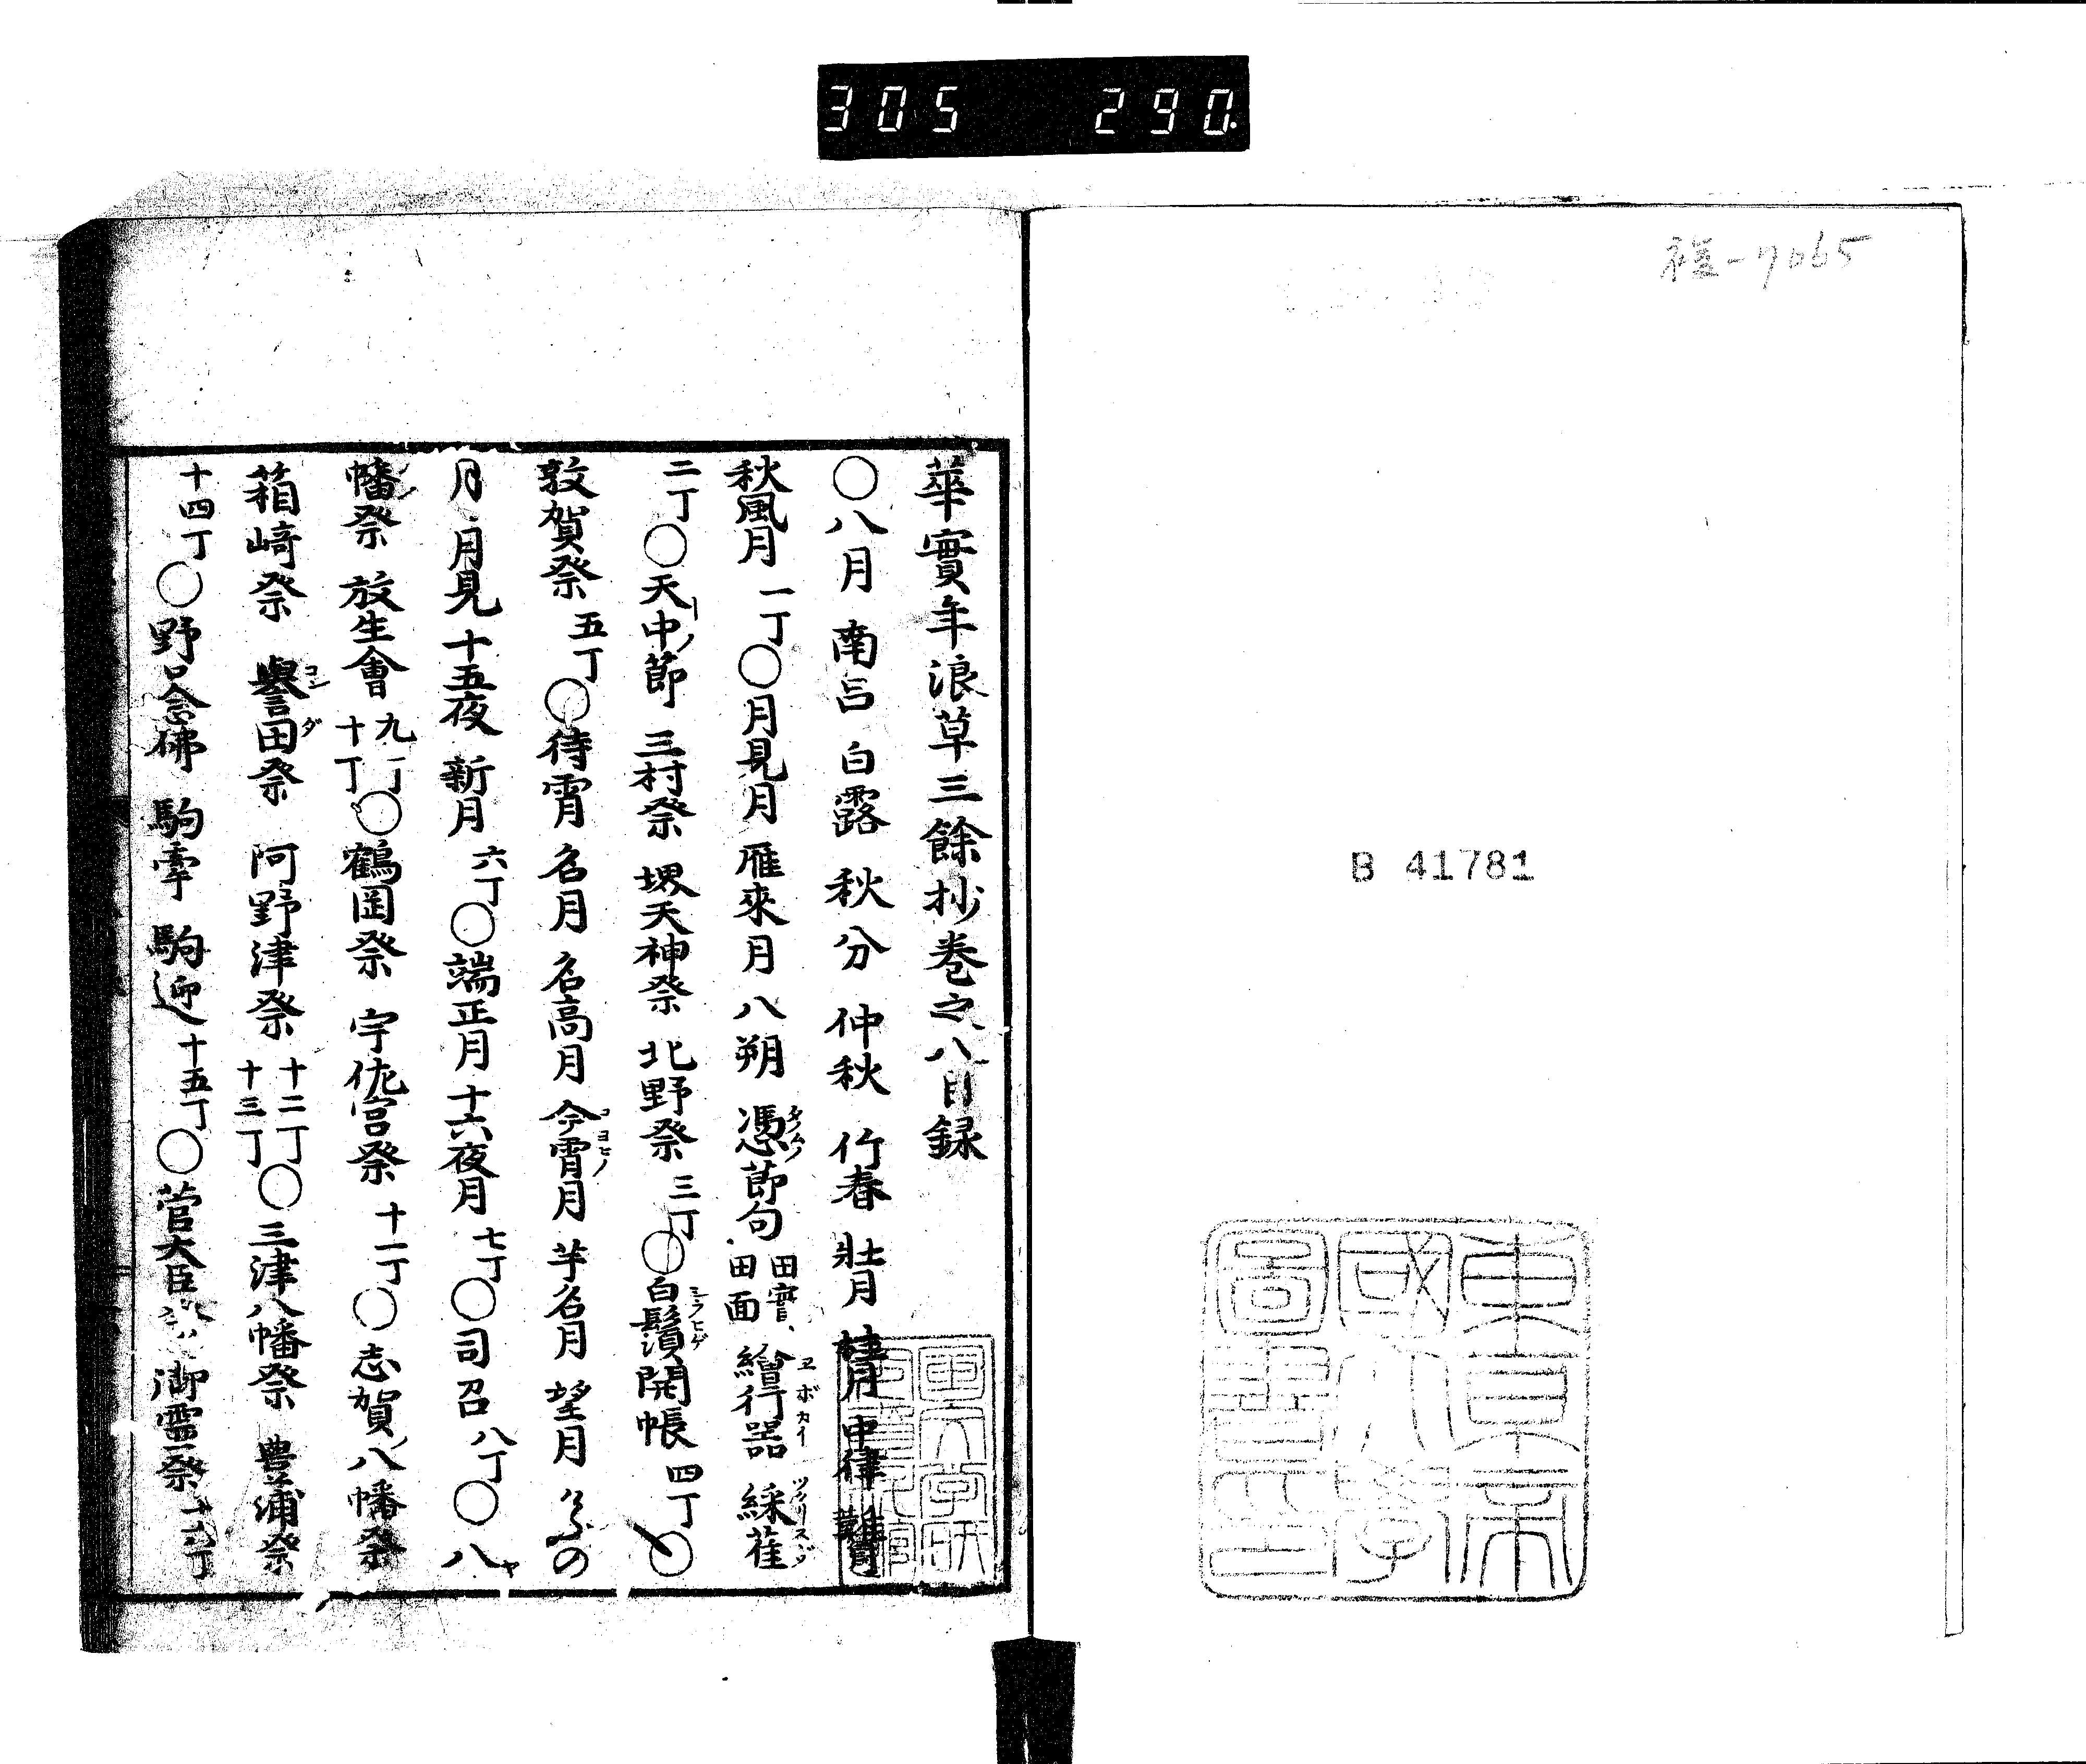 305 290.
複-7065
B 41781
東京帝
國大學
圖書印
華實年浪草三餘抄巻之八目録
○八月 南呂 白露 秋分 仲秋 竹春 壮月 桂月 中律 難月
秋風月 一丁○月見月 雁來月 八朔 憑節句 田實 田面 繪行器 綵雀
二丁○天中節 三村祭 堺天神祭 北野祭 三丁○白鬚開帳 四丁○
敦賀祭 五丁○待宵 名月 名高月 今宵月 芋名月 望月 けふの
月 月見 十五夜 新月 六丁○端正月 十六夜月 七丁○司召 八丁○八
幡祭 放生會 九丁 十丁○鶴岡祭 宇佐宮祭 十一丁○志賀八幡祭
箱崎祭 譽田祭 阿野津祭 十二丁 十三丁○三津八幡祭 豊浦祭
十四丁○野口念佛 駒牽 駒迎 十五丁○菅大臣祭 御霊祭